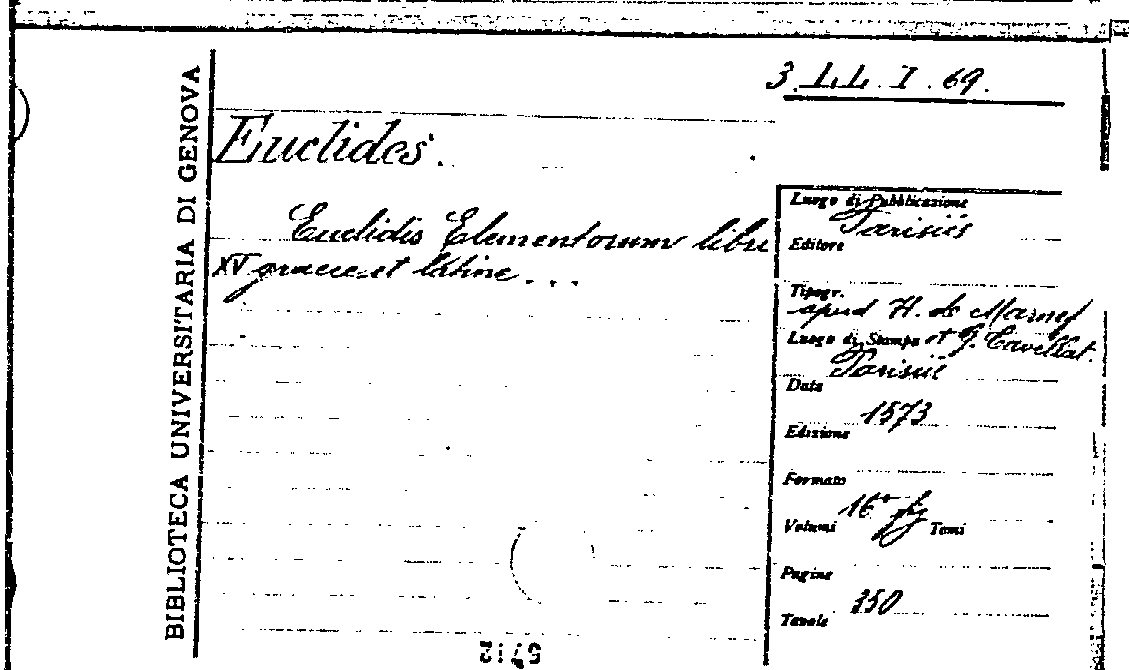 3. LL. I. 69.
BIBLIOTECA UNIVERSITARIA DI GENOVA
Euclides.
Euclidis Elementorum libri
XV graece et latine ...
Luogo di Pubblicazione
Parisiis
Editore
Tipogr.
apud H. de Marnef
Luogo di Stampa et G. Cavellat.
Parisiis
Data
1573
Edizione
Formato
16° fig
Volumi Tomi
Pagine
350
Tavole